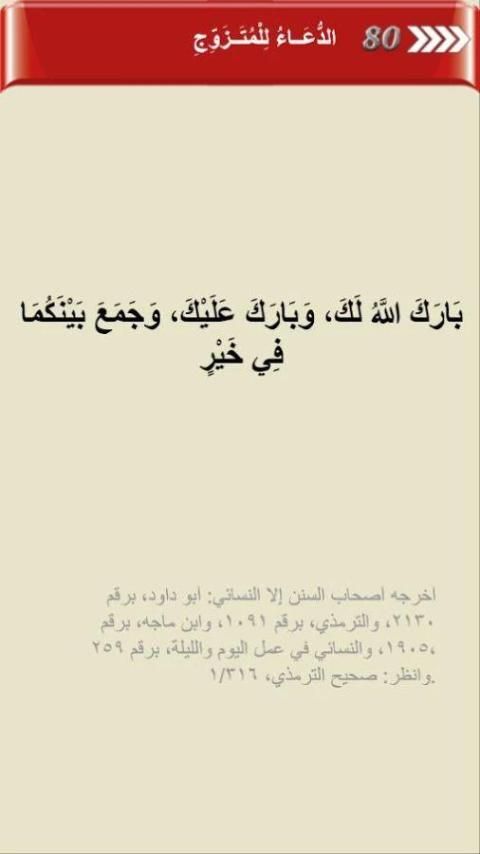 الدُّعَــاءُ لِلْمُتَــزَوِّجِ 80
بَارَكَ اللَّهُ لَكَ، وَبَارَكَ عَلَيْكَ، وَجَمَعَ بَيْنَكُمَا
فِي خَيْرٍ
أخرجه أصحاب السنن إلا النسائي: أبو داود، برقم
٢١٣٠، والترمذي، برقم ١٠٩١، وابن ماجه، برقم
١٩٠٥، والنسائي في عمل اليوم والليلة، برقم ٢٥٩،
وانظر: صحيح الترمذي، ١/٣١٦.